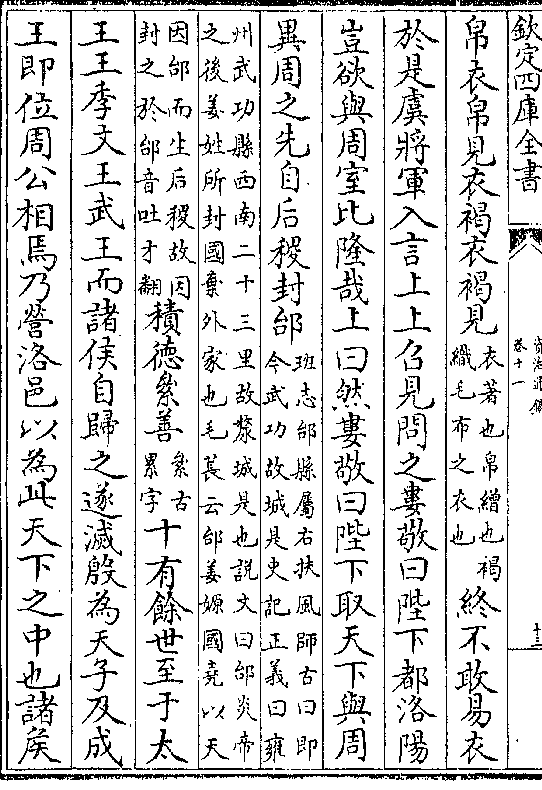 欽定四庫全書
資治通鑑
卷十一
十三
帛衣帛見衣褐衣褐見
衣著也帛繒也褐
織毛布之衣也
終不敢易衣
於是虞將軍入言上上召見問之婁敬曰陛下都洛陽
豈欲與周室比隆哉上曰然婁敬曰陛下取天下與周
異周之先自后稷封邰
班志邰縣屬右扶風師古曰即
今武功故城是史記正義曰雍
州武功縣西南二十三里故斄城是也說文曰邰炎帝
之後姜姓所封國棄外家也毛萇云邰姜嫄國堯以天
因邰而生后稷故因
封之於邰音吐才翻
積德絫善
絫古
累字
十有餘世至于太
王王季文王武王而諸侯自歸之遂滅殷為天子及成
王即位周公相焉乃營洛邑以為此天下之中也諸侯